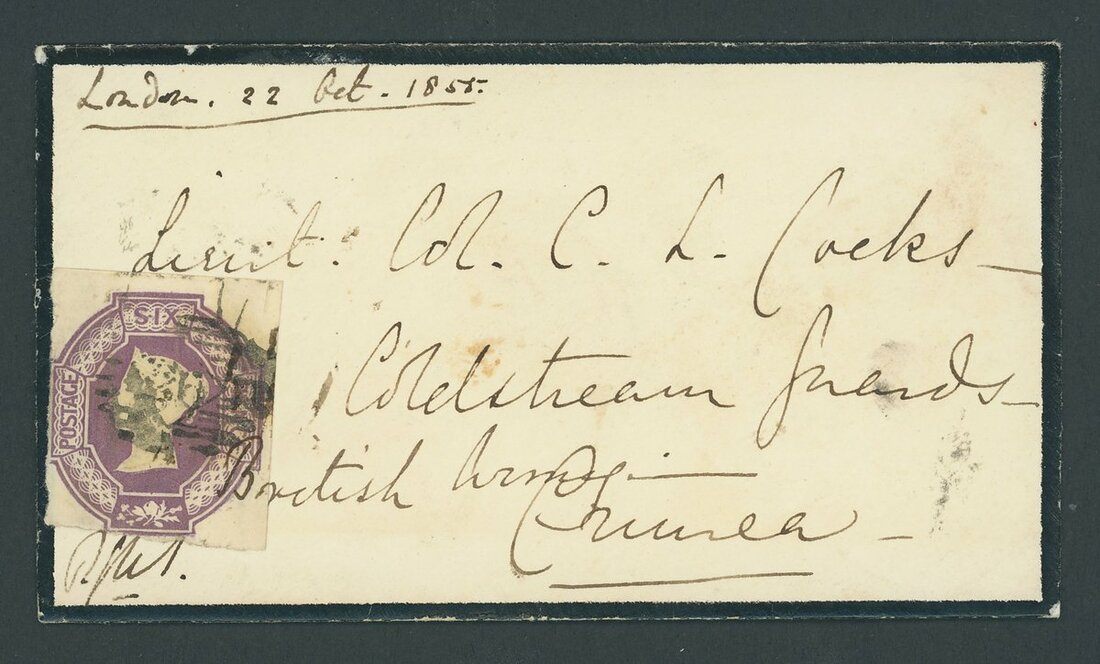 London. 22 Oct. 1855.
Lieut. Col. C. L. Cocks
Coldstream Guards
SIX
POSTAGE
British Army
Crimea